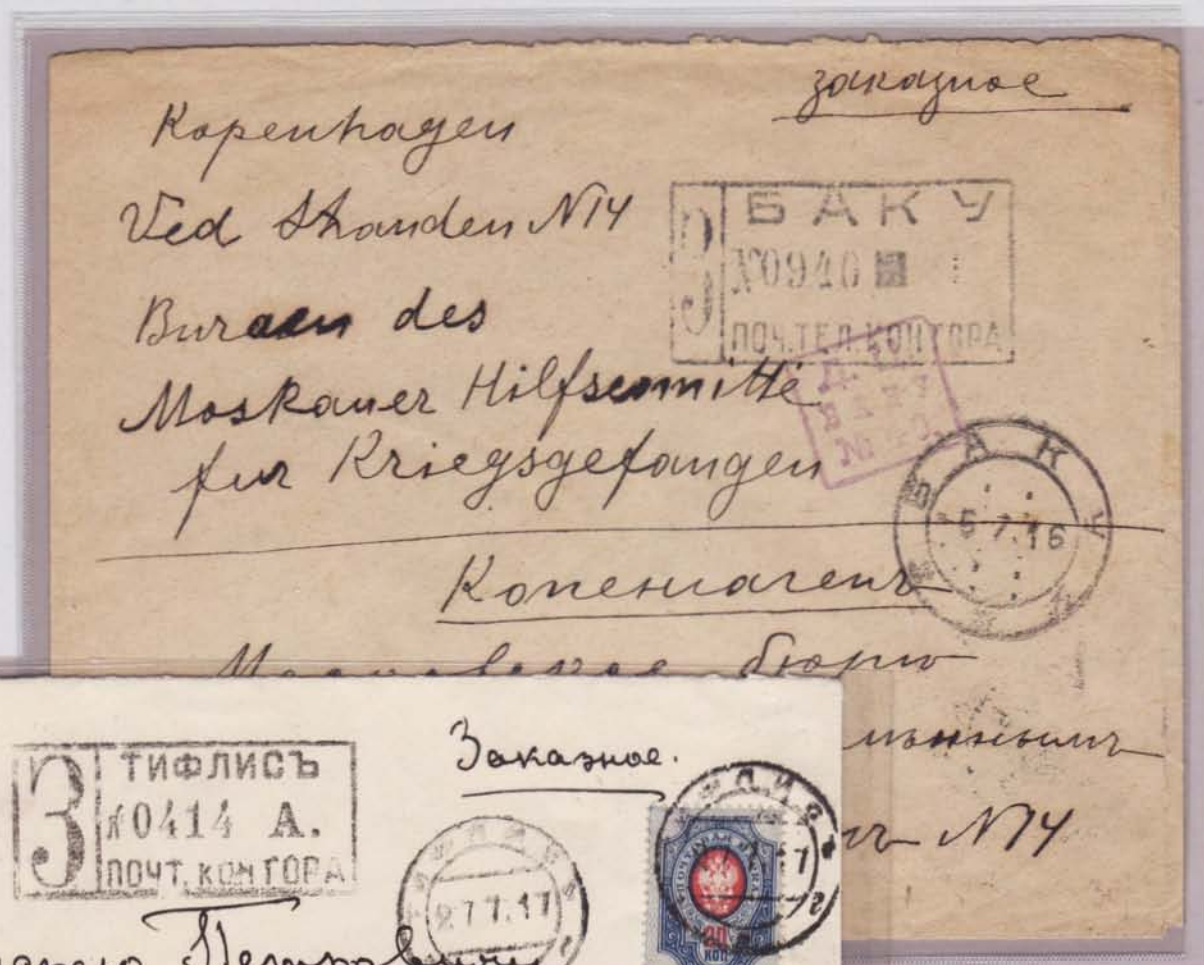 заказное
Kopenhagen
Ved Stranden N14
Bureau des
Moskauer Hilfscomitté
fur Kriegsgefangen
БАКУ
З
№0940
ПОЧ.ТЕЛ.КОНТОРА
Д. Ц.
№
БАКУ
5 7.16
Копенгагенъ
Московское бюро
N14
З
ТИФЛИСЪ
№0414 А.
ПОЧТ. КОНТОРА
Заказное.
ТИФЛИСЪ
27 7.17
ТИФЛИСЪ
20
КОП